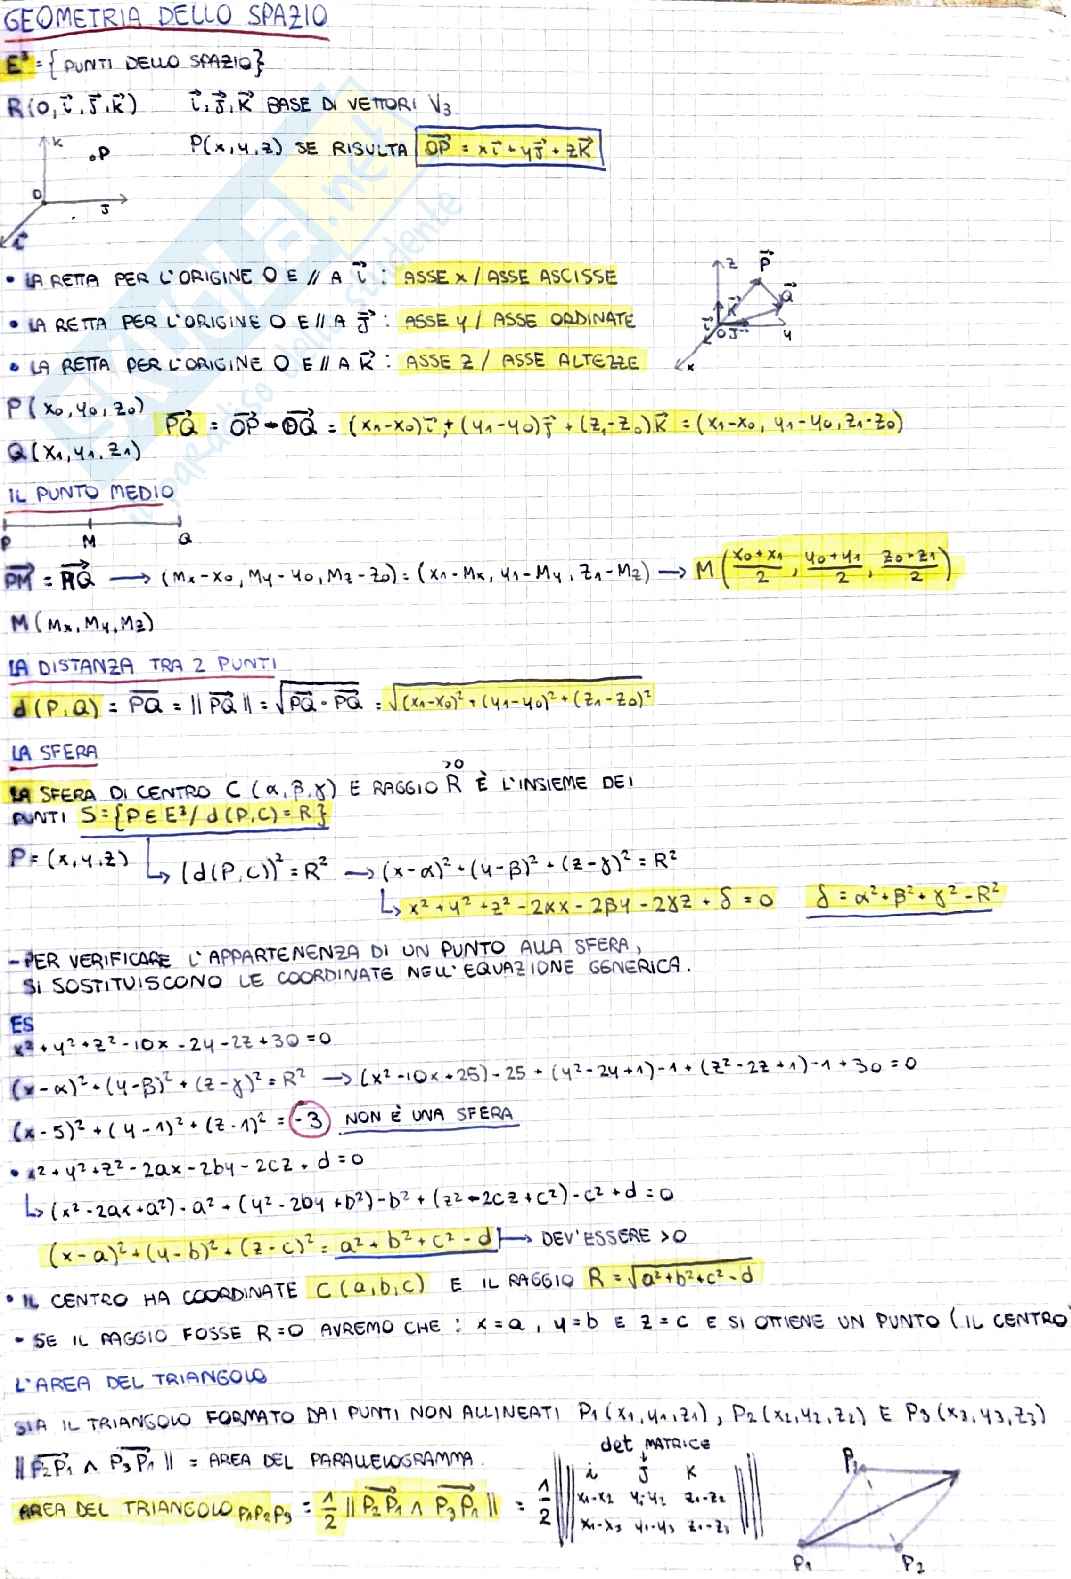 GEOMETRIA DELLO SPAZIO
E³ = {PUNTI DELLO SPAZIO}
R(O, i⃗, j⃗, k⃗) i⃗, j⃗, k⃗ BASE DI VETTORI V₃
P(x, y, z) SE RISULTA OP⃗ = xi⃗ + yj⃗ + zk⃗
K
P
O
J
i⃗
• LA RETTA PER L'ORIGINE O E // A i⃗ : ASSE x / ASSE ASCISSE
• LA RETTA PER L'ORIGINE O E // A j⃗ : ASSE y / ASSE ORDINATE
• LA RETTA PER L'ORIGINE O E // A k⃗ : ASSE z / ASSE ALTEZZE
z P⃗
Q⃗
k⃗
i⃗ O j⃗ y
x
P(x₀, y₀, z₀)
PQ⃗ = OP⃗ - OQ⃗ = (x₁-x₀)i⃗ + (y₁-y₀)j⃗ + (z₁-z₀)k⃗ = (x₁-x₀, y₁-y₀, z₁-z₀)
Q(x₁, y₁, z₁)
IL PUNTO MEDIO
P M Q
PM⃗ = MQ⃗ → (Mx-x₀, My-y₀, Mz-z₀) = (x₁-Mx, y₁-My, z₁-Mz) → M((x₀+x₁)/2, (y₀+y₁)/2, (z₀+z₁)/2)
M(Mx, My, Mz)
LA DISTANZA TRA 2 PUNTI
d(P,Q) = PQ = ||PQ⃗|| = √(PQ⃗ · PQ⃗) = √((x₁-x₀)² + (y₁-y₀)² + (z₁-z₀)²)
LA SFERA
>0
LA SFERA DI CENTRO C(α, β, γ) E RAGGIO R È L'INSIEME DEI
PUNTI S = {P ∈ E³ / d(P,C) = R}
P = (x, y, z) ↳ (d(P,C))² = R² → (x-α)² + (y-β)² + (z-γ)² = R²
↳ x² + y² + z² - 2αx - 2βy - 2γz + δ = 0 δ = α² + β² + γ² - R²
- PER VERIFICARE L'APPARTENENZA DI UN PUNTO ALLA SFERA,
SI SOSTITUISCONO LE COORDINATE NELL'EQUAZIONE GENERICA.
ES
x² + y² + z² - 10x - 2y - 2z + 30 = 0
(x-α)² + (y-β)² + (z-γ)² = R² → (x² - 10x + 25) - 25 + (y² - 2y + 1) - 1 + (z² - 2z + 1) - 1 + 30 = 0
(x-5)² + (y-1)² + (z-1)² = -3 NON È UNA SFERA
• x² + y² + z² - 2ax - 2by - 2cz + d = 0
↳ (x² - 2ax + a²) - a² + (y² - 2by + b²) - b² + (z² - 2cz + c²) - c² + d = 0
(x-a)² + (y-b)² + (z-c)² = a² + b² + c² - d → DEV'ESSERE >0
• IL CENTRO HA COORDINATE C(a,b,c) E IL RAGGIO R = √(a²+b²+c²-d)
- SE IL RAGGIO FOSSE R=0 AVREMO CHE : x=a, y=b E z=c E SI OTTIENE UN PUNTO (IL CENTRO
L'AREA DEL TRIANGOLO
SIA IL TRIANGOLO FORMATO DAI PUNTI NON ALLINEATI P₁(x₁,y₁,z₁), P₂(x₂,y₂,z₂) E P₃(x₃,y₃,z₃)
det MATRICE
||P₂P₁⃗ ∧ P₃P₁⃗|| = AREA DEL PARALLELOGRAMMA.
i j k
AREA DEL TRIANGOLO P₁P₂P₃ = 1/2 ||P₂P₁⃗ ∧ P₃P₁⃗|| = 1/2 x₁-x₂ y₁-y₂ z₁-z₂
x₁-x₃ y₁-y₃ z₁-z₃
P₃
P₁ P₂
SKUOLA.net
il paradiso dello studente